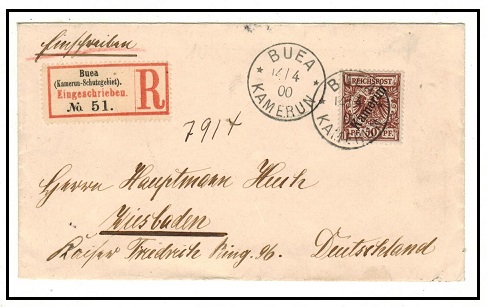 Einschreiben
Buea
(Kamerun-Schutzgebiet).
Eingeschrieben.
No. 51.
R
BUEA
14/4
00
* KAMERUN *
REICHSPOST
Kamerun
50
PF. PF.
BUEA
KAMERUN
7914
Herrn Hauptmann
Wiesbaden
Kaiser Friedrich Ring. 96. Deutschland